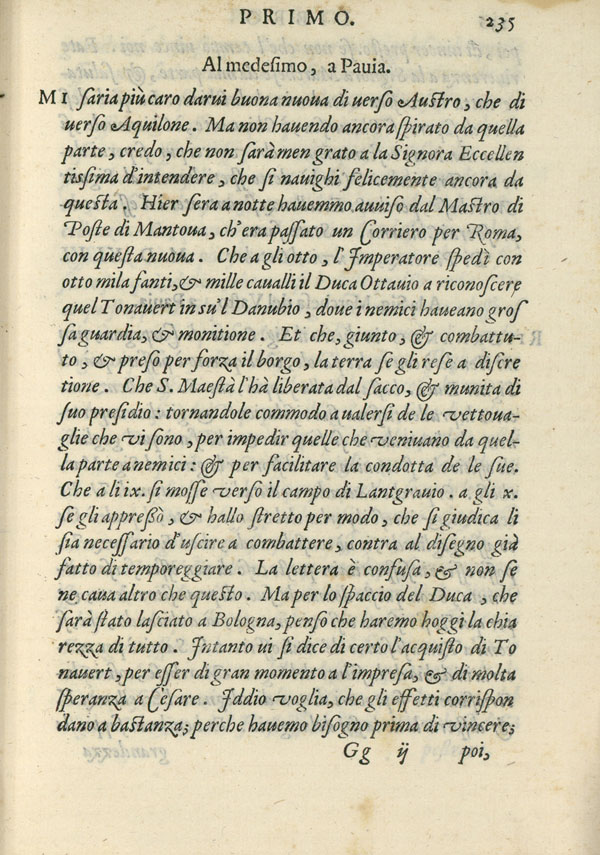 PRIMO. 235
Al medesimo, a Pauia.
MI saria più caro darui buona nuoua di uerso Austro, che di
uerso Aquilone. Ma non hauendo ancora spirato da quella
parte, credo, che non sarà men grato a la Signora Eccellen
tissima d'intendere, che si nauighi felicemente ancora da
questa. Hier sera a notte hauemmo auuiso dal Mastro di
Poste di Mantoua, ch'era passato un Corriero per Roma,
con questa nuoua. Che a gli otto, l'Imperatore spedì con
otto mila fanti, & mille caualli il Duca Ottauio a riconoscere
quel Tonauert in su'l Danubio, doue i nemici haueano gros
sa guardia, & monitione. Et che, giunto, & combattu-
to, & preso per forza il borgo, la terra se gli rese a discre
tione. Che S. Maestà l'hà liberata dal sacco, & munita di
suo presidio: tornandole commodo a ualersi de le vettoua-
glie che vi sono, per impedir quelle che veniuano da quel-
la parte a nemici: & per facilitare la condotta de le sue.
Che a li ix. si mosse verso il campo di Lantgrauio. a gli x.
se gli appressò, & hallo stretto per modo, che si giudica li
sia necessario d'uscire a combattere, contra al disegno già
fatto di temporeggiare. La lettera è confusa, & non se
ne caua altro che questo. Ma per lo spaccio del Duca, che
sarà stato lasciato a Bologna, penso che haremo hoggi la chia
rezza di tutto. Intanto ui si dice di certo l'acquisto di To
nauert, per esser di gran momento a l'impresa, & di molta
speranza a Cesare. Iddio voglia, che gli effetti corrispon
dano a bastanza; perche hauemo bisogno prima di vincere;
Gg ij poi,